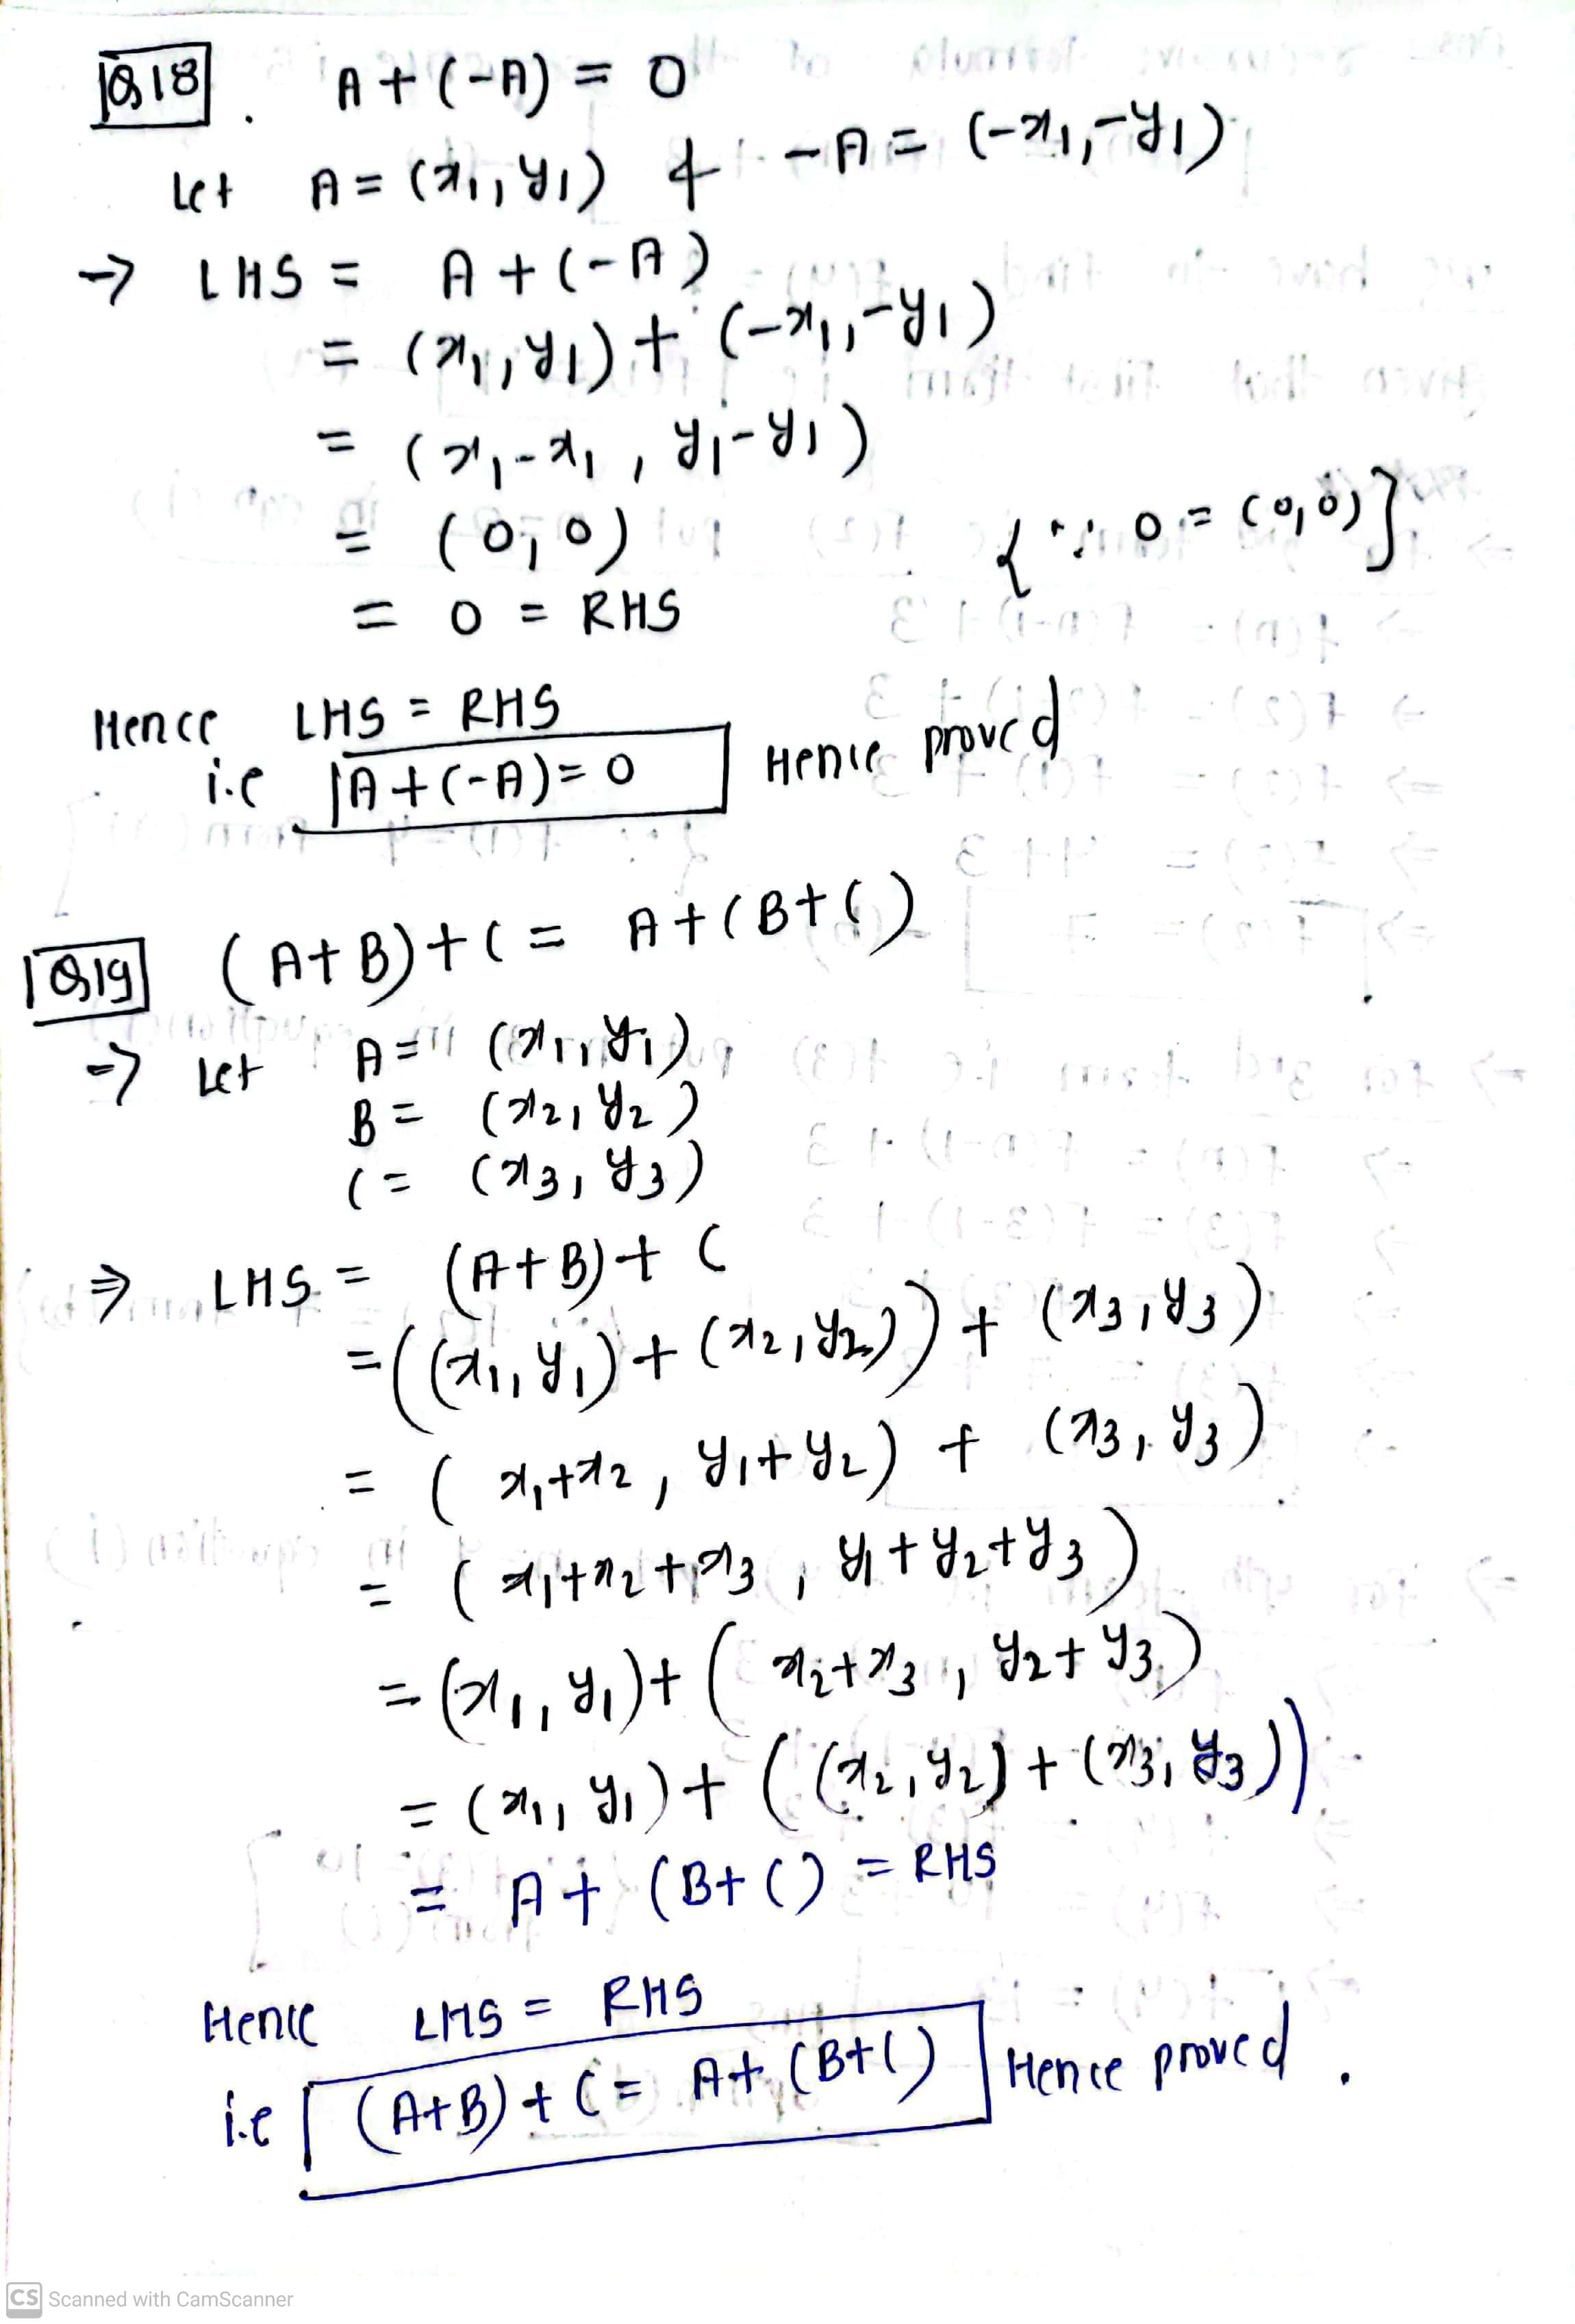 Q18. A + (-A) = 0
Let A = (x₁, y₁) & -A = (-x₁, -y₁)
→ LHS = A + (-A)
= (x₁, y₁) + (-x₁, -y₁)
= (x₁-x₁, y₁-y₁)
= (0, 0) {∵ 0 = (0,0)}
= 0 = RHS
Hence LHS = RHS
i.e A + (-A) = 0 Hence proved
Q19 (A+B)+C = A+(B+C)
→ Let A = (x₁, y₁)
B = (x₂, y₂)
C = (x₃, y₃)
⇒ LHS = (A+B)+C
= ((x₁, y₁) + (x₂, y₂)) + (x₃, y₃)
= (x₁+x₂, y₁+y₂) + (x₃, y₃)
= (x₁+x₂+x₃, y₁+y₂+y₃)
= (x₁, y₁) + (x₂+x₃, y₂+y₃)
= (x₁, y₁) + ((x₂, y₂) + (x₃, y₃))
= A + (B+C) = RHS
Hence LHS = RHS
i.e (A+B)+C = A+(B+C) Hence proved.
CS Scanned with CamScanner